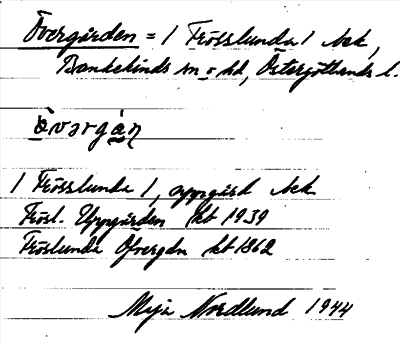 Övergården = 1 Frösslunda 1 hek,
Bankekinds sn o hd, Östergötlands l.
òvərgàṇ
1 Frösslunda 1, uppgård hek
Frösl. Uppgården kb 1939
Fröslunda Öfvergdn kb 1862
Meja Nordlund 1944